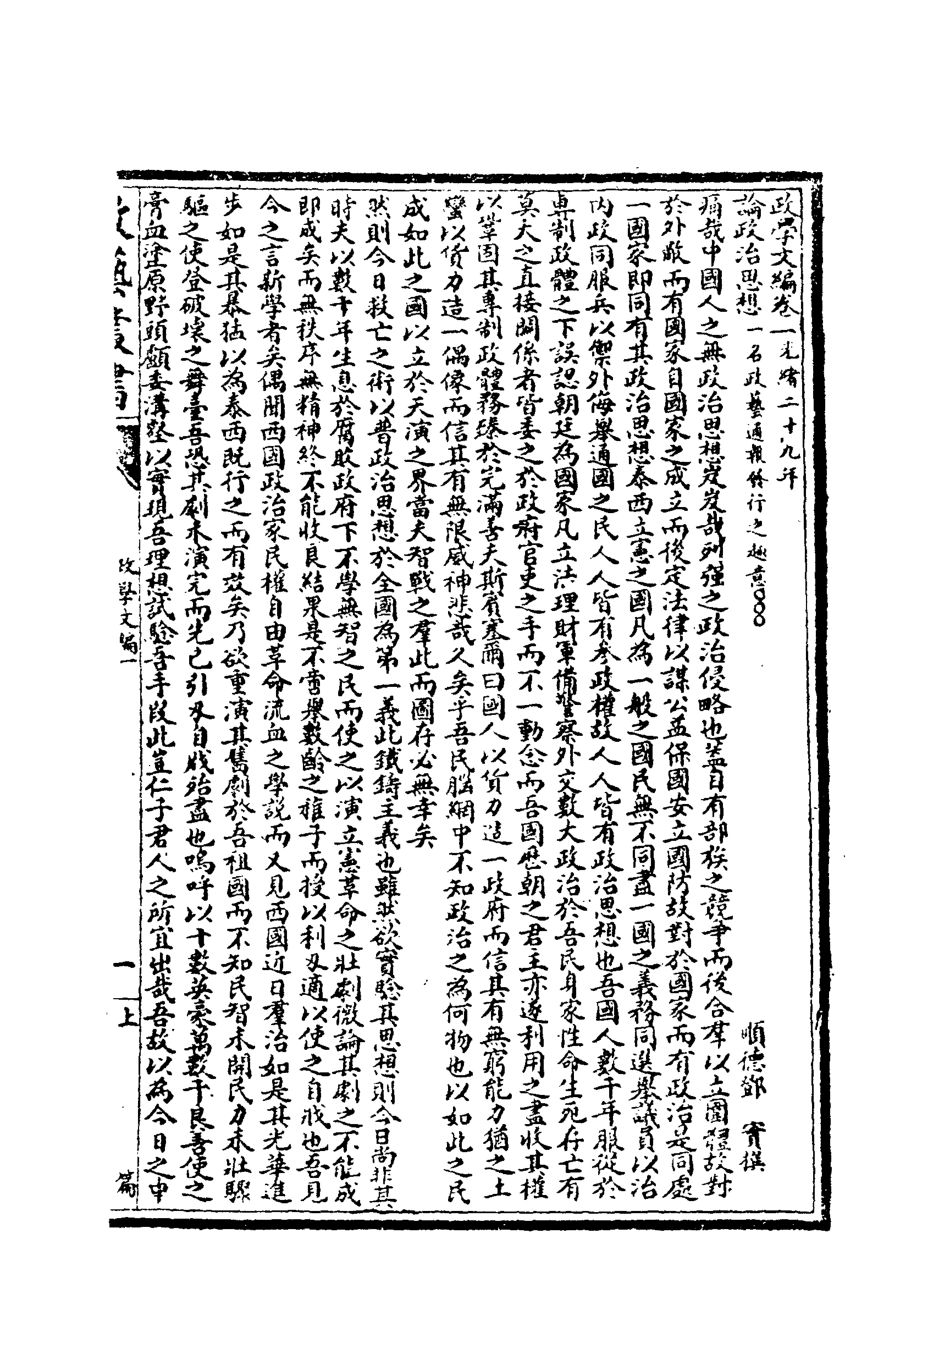 政學文編卷一 光緒二十九年
論政治思想 一名政藝通報發行之趣意○○○ 順德鄧 實撰
痛哉中國人之無政治思想岌岌哉列強之政治侵略也蓋自有部族之競爭而後合羣以立團體故對
於外敵而有國家自國家之成立而後定法律以謀公益保國安立國防故對於國家而有政治是同處
一國家即同有其政治思想泰西立憲之國凡為一般之國民無不同盡一國之義務同選舉議員以治
內政同服兵以禦外侮舉通國之民人人皆有參政權故人人皆有政治思想也吾國人數千年服從於
專制政體之下誤認朝廷為國家凡立法理財軍備警察外交數大政治於吾民身家性命生死存亡有
莫大之直接關係者皆委之於政府官吏之手而不一動念而吾國歷朝之君主亦遂利用之盡收其權
以鞏固其專制政體務臻於完滿善夫斯賓塞爾曰國人以貨力造一政府而信其有無窮能力猶之土
蠻以貨力造一偶像而信其有無限威神悲哉久矣乎吾民腦網中不知政治之為何物也以如此之民
成如此之國以立於天演之界當夫智戰之羣此而圖存必無幸矣
然則今日救亡之術以普政治思想於全國為第一義此鐵鑄主義也雖然欲實驗其思想則今日尚非其
時夫以數千年生息於腐敗政府下不學無智之民而使之以演立憲革命之壯劇微論其劇之不能成
即成矣而無秩序無精神終不能收良結果是不啻舉數齡之稚子而授以利刃適以使之自戕也吾見
今之言新學者矣偶聞西國政治家民權自由革命流血之學說而又見西國近日羣治如是其光華進
步如是其暴猛以為泰西既行之而有效矣乃欲重演其舊劇於吾祖國而不知民智未開民力未壯驟
驅之使登破壞之舞臺吾恐其劇未演完而先已引刃自戕殆盡也嗚呼以十數英豪萬數千良善使之
膏血塗原野頭顱委溝壑以實現吾理想試驗吾手段此豈仁子君人之所宜出哉吾故以為今日之中
政藝叢書 政學文編一 一 上 篇